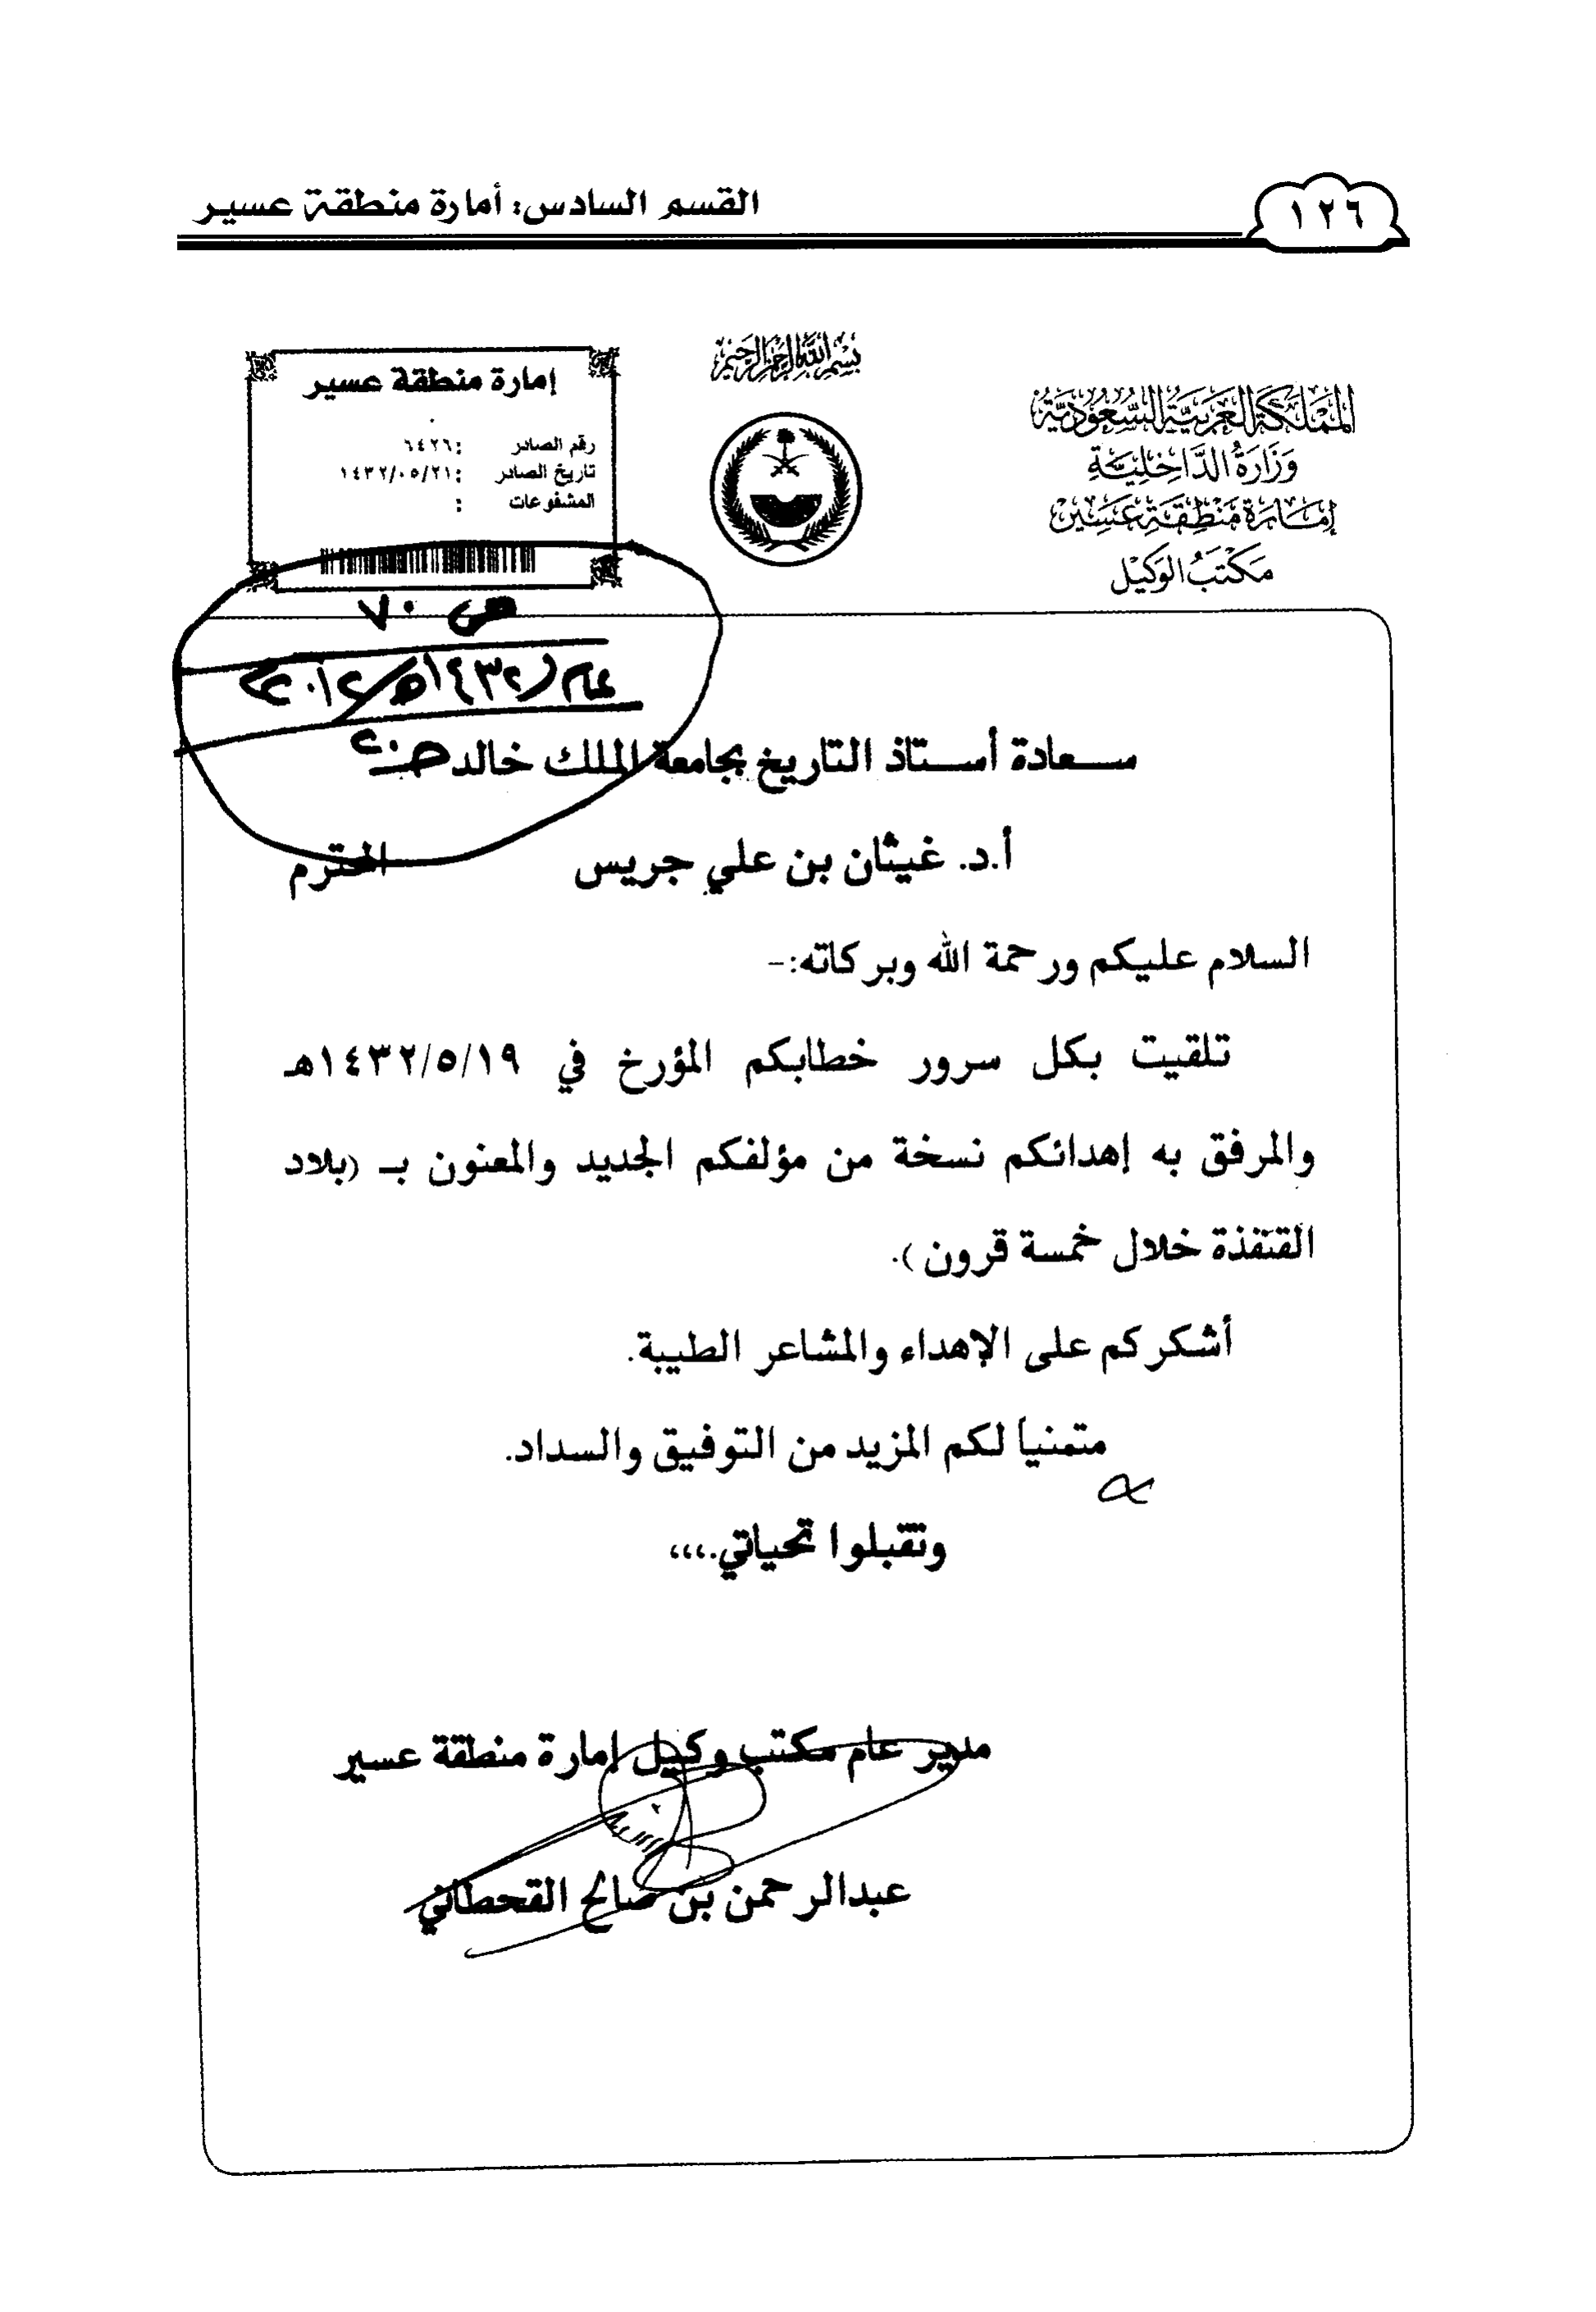 ١٢٦
القسم السادس: أمارة منطقة عسير
بسم الله الرحمن الرحيم
المملكة العربية السعودية
وزارة الداخلية
إمارة منطقة عسير
مكتب الوكيل
إمارة منطقة عسير
رقم الصادر : ٦٤٢٦
تاريخ الصادر : ١٤٣٢/٠٥/٢١
المشفوعات :
ص ٧٠
سعادة أستاذ التاريخ بجامعة الملك خالد
أ.د. غيثان بن علي جريس المحترم
السلام عليكم ورحمة الله وبركاته:-
تلقيت بكل سرور خطابكم المؤرخ في ١٤٣٢/٥/١٩هـ
والمرفق به إهدائكم نسخة من مؤلفكم الجديد والمعنون بـ (بلاد
القنفذة خلال خمسة قرون ).
أشكركم على الإهداء والمشاعر الطيبة.
متمنياً لكم المزيد من التوفيق والسداد.
وتقبلوا تحياتي.،،،
مدير عام مكتب وكيل إمارة منطقة عسير
عبدالرحمن بن صالح القحطاني